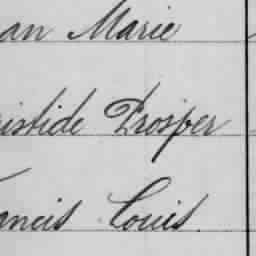 an Marie
istide Prosper
ancis Louis.